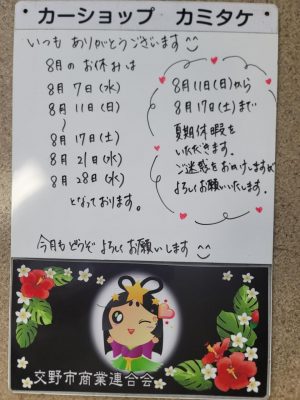 カーショップ カミタケ
いつも ありがとうございます
8月のお休みは
8月 7日(水)
8月 11日(日)
〜
8月 17日(土)
8月 21日(水)
8月 28日(水)
となっております。
8月11日(日)から
8月17日(土)まで
夏期休暇を
いただきます。
ご迷惑をおかけしますが
よろしくお願いいたします。
今月もどうぞ よろしくお願いします
交野市商業連合会